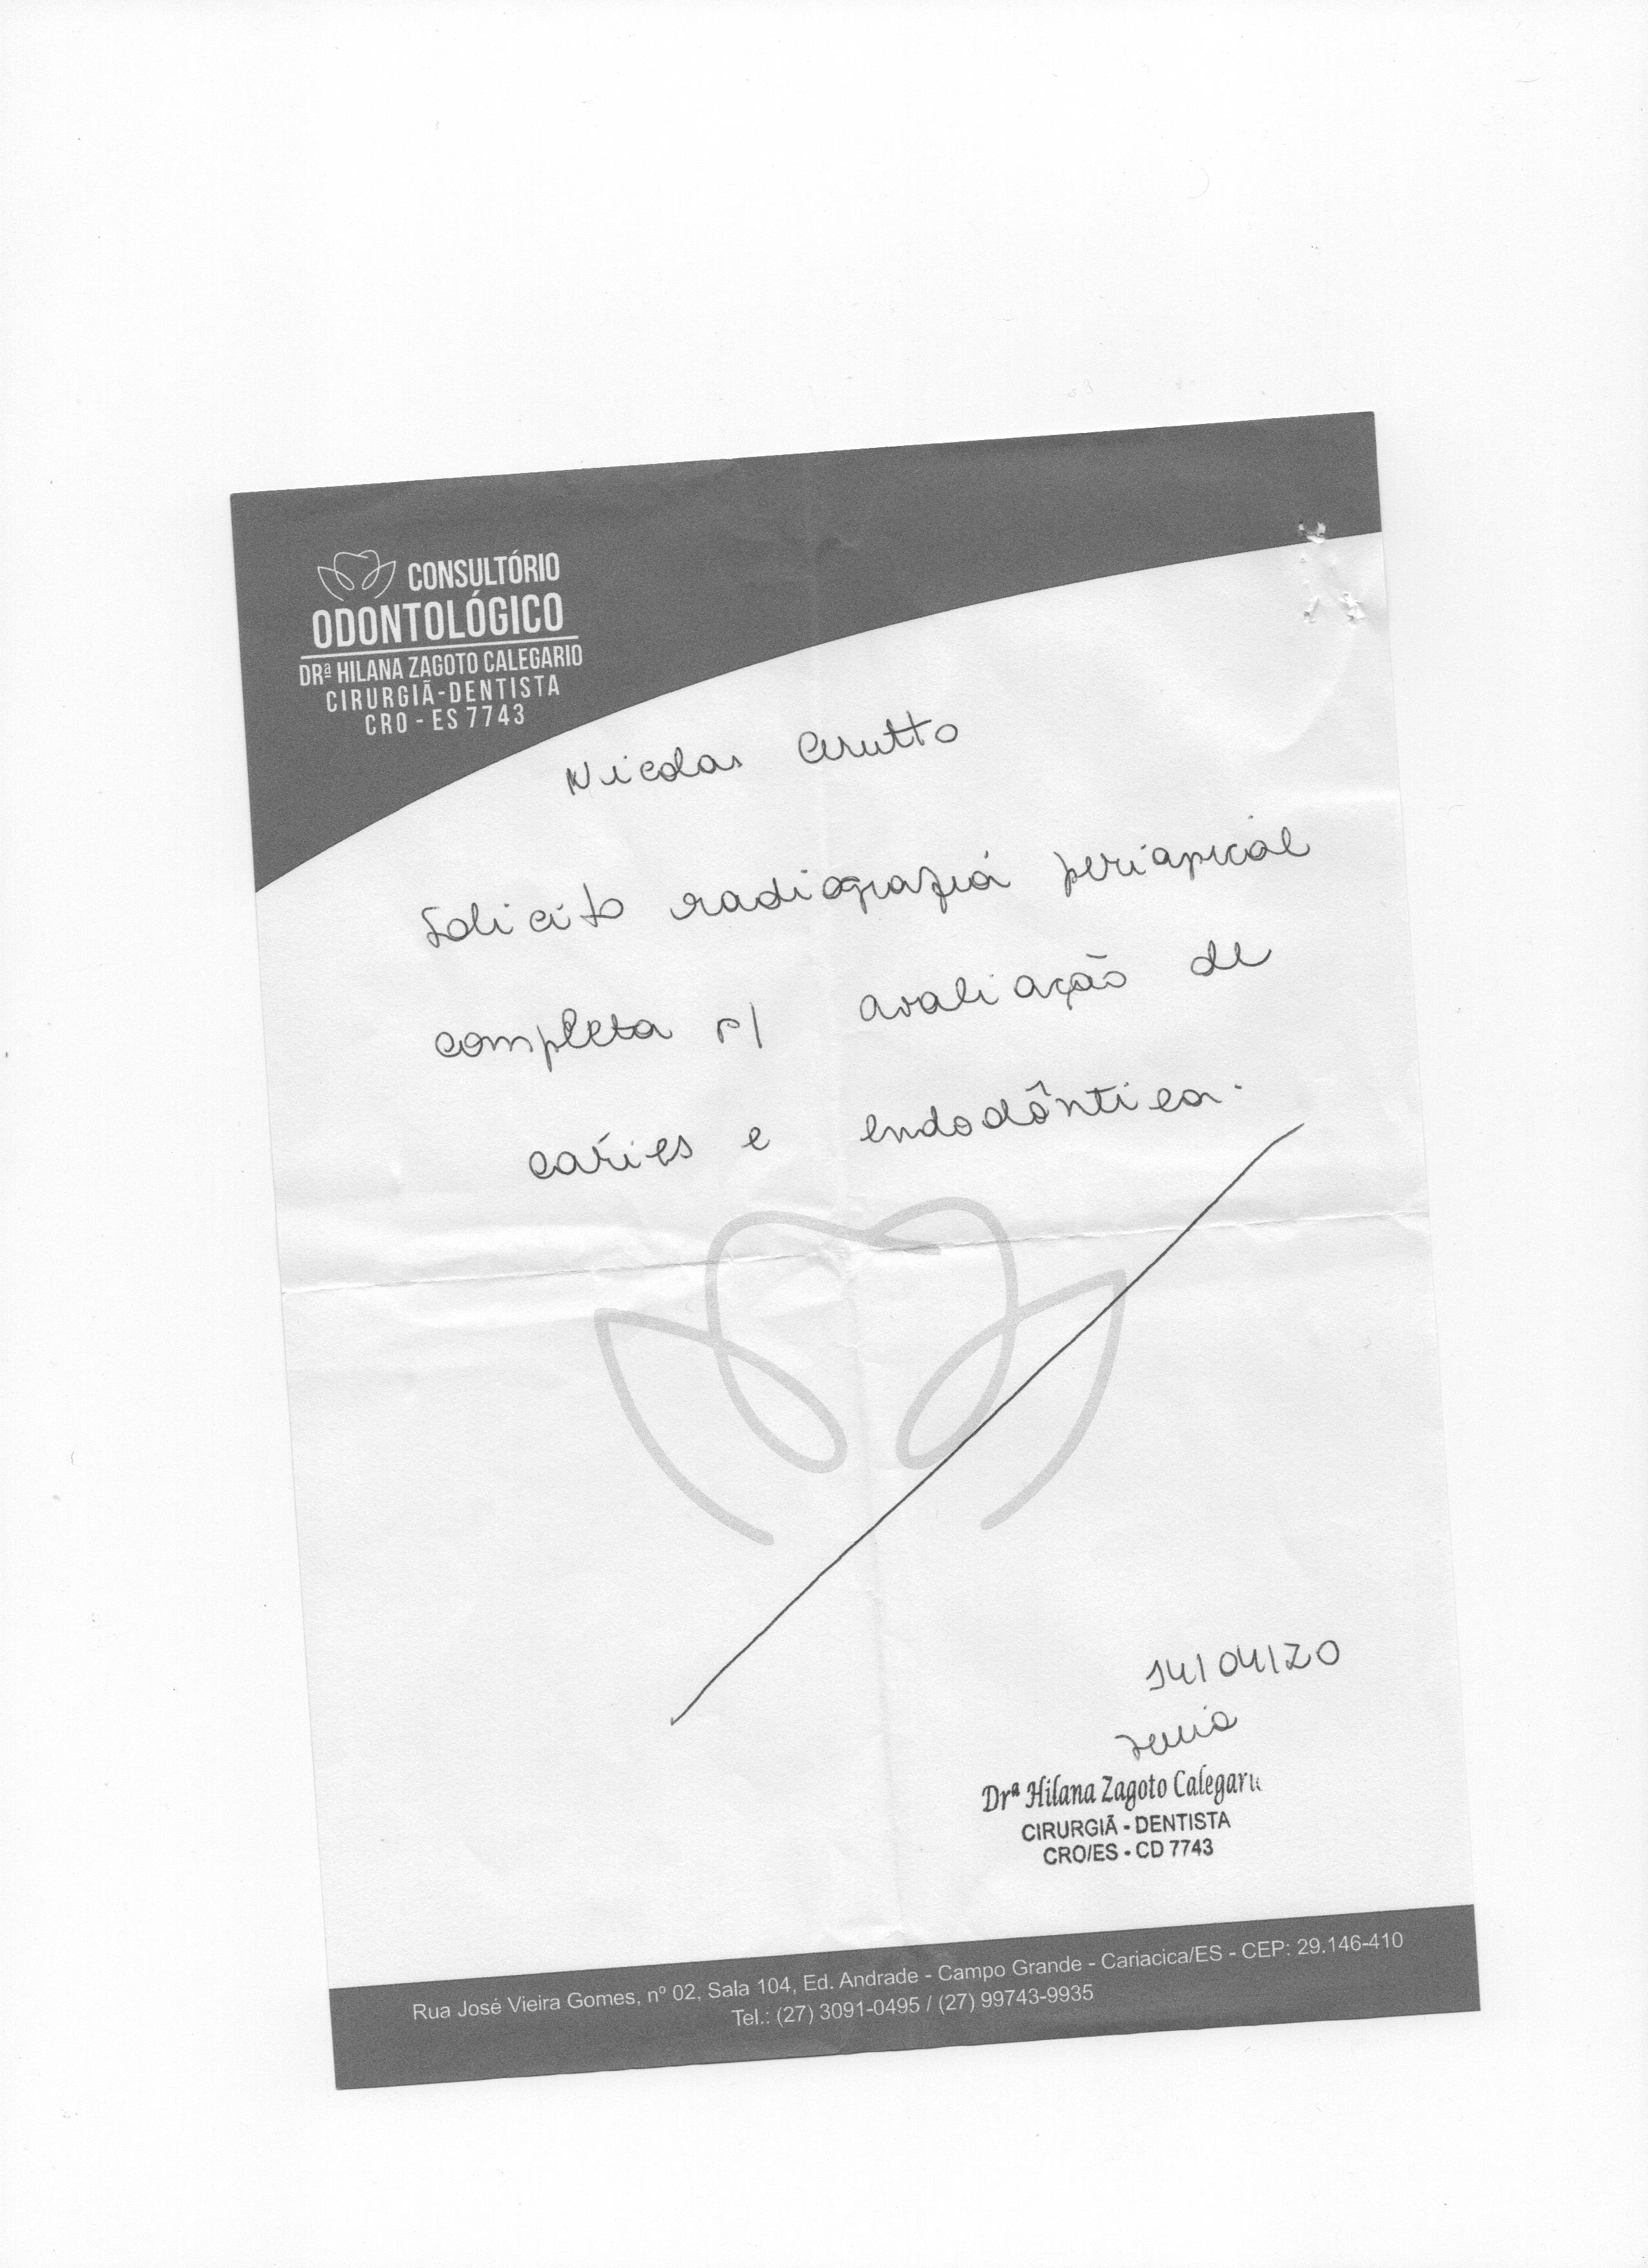 CONSULTÓRIO
ODONTOLÓGICO
DRª HILANA ZAGOTO CALEGARIO
CIRURGIÃ-DENTISTA
CRO - ES 7743
Nicolas
Solicito radiografia periapical
completa p/ avaliação de
cáries e endodôntica.
14/04/20
Drª Hilana Zagoto Calegari
CIRURGIÃ - DENTISTA
CRO/ES - CD 7743
Rua José Vieira Gomes, nº 02, Sala 104, Ed. Andrade - Campo Grande - Cariacica/ES - CEP: 29.146-410
Tel.: (27) 3091-0495 / (27) 99743-9935